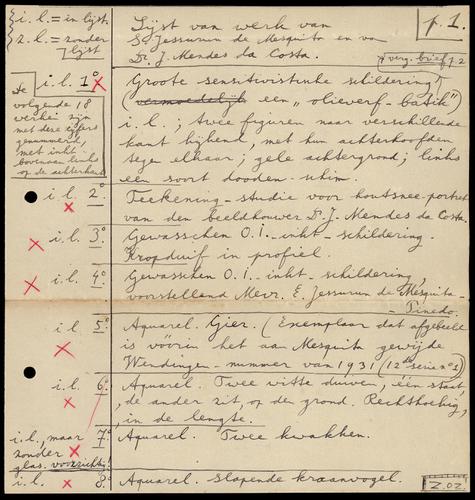 i. l. = in lijst.
z. l. = zonder lijst
Lijst van werk van
S. Jessurun de Mesquita en van
Dr. J. Mendes da Costa.
p. 1.
verg. brief p. 2
De volgende 18
werken zijn
met deze cijfers
genummerd,
met inkt,
bovenaan links
op de achterkant
i. l. 1°
Groote sensitivistische schildering!
(vermoedelijk een „oliewerf-batik")
i. l.; twee figuren naar verschillende
kant kijkend, met hun achterhoofden
tegen elkaar; gele achtergrond; links
een soort dooden-schim.
i. l. 2°
Teekening-studie voor houtsnee-portret
van den beeldhouwer Dr. J. Mendes da Costa.
i. l. 3°
Gewasschen O. I. inkt-schildering
Kropduif in profiel.
i. l. 4°
Gewasschen O. I. inkt-schildering,
voorstellend Mevr. E. Jessurun de Mesquita-
Pinedo.
i. l. 5°
Aquarel. Gier. (Exemplaar dat afgebeeld
is vóórin het aan Mesquita gewijde
Wendingen-nummer van 1931 (12de serie n° 1)
i. l. 6°
Aquarel. Twee witte duiven, één staat,
de ander zit, op den grond. Rechthoekig,
in de lengte.
i. l., maar 7°
zonder
glas. voorzichtig!
Aquarel. Twee kwakken.
i. l. 8°
Aquarel. Slapende kraanvogel.
Z.OZ.